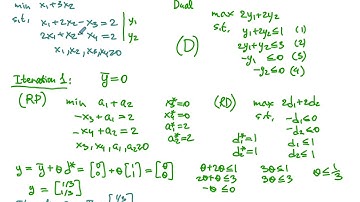 min x₁+3x₂
s.t. x₁+2x₂-x₃=2 | y₁
2x₁+x₂-x₄=2 | y₂
x₁,x₂,x₃,x₄≥0
Dual
(D)
max 2y₁+2y₂
s.t. y₁+2y₂≤1 (1)
2y₁+y₂≤3 (2)
-y₁ ≤0 (3)
-y₂≤0 (4)
Iteration 1: ȳ=0
(RP) min a₁+a₂
-x₃+a₁=2
-x₄+a₂=2
x₃,x₄,a₁,a₂≥0
x₃*=0
x₄*=0
a₁*=2
a₂*=2
(RD) max 2d₁+2d₂
s.t. -d₁≤0
-d₂≤0
d₁≤1
d₂≤1
d₁*=1
d₂*=1
y = ȳ+θd* = [0 0] + θ[1 1] = [θ θ]
θ+2θ≤1 3θ≤1 θ≤1/3
2θ+θ≤3 3θ≤3
-θ≤0
y = [1/3 1/3]